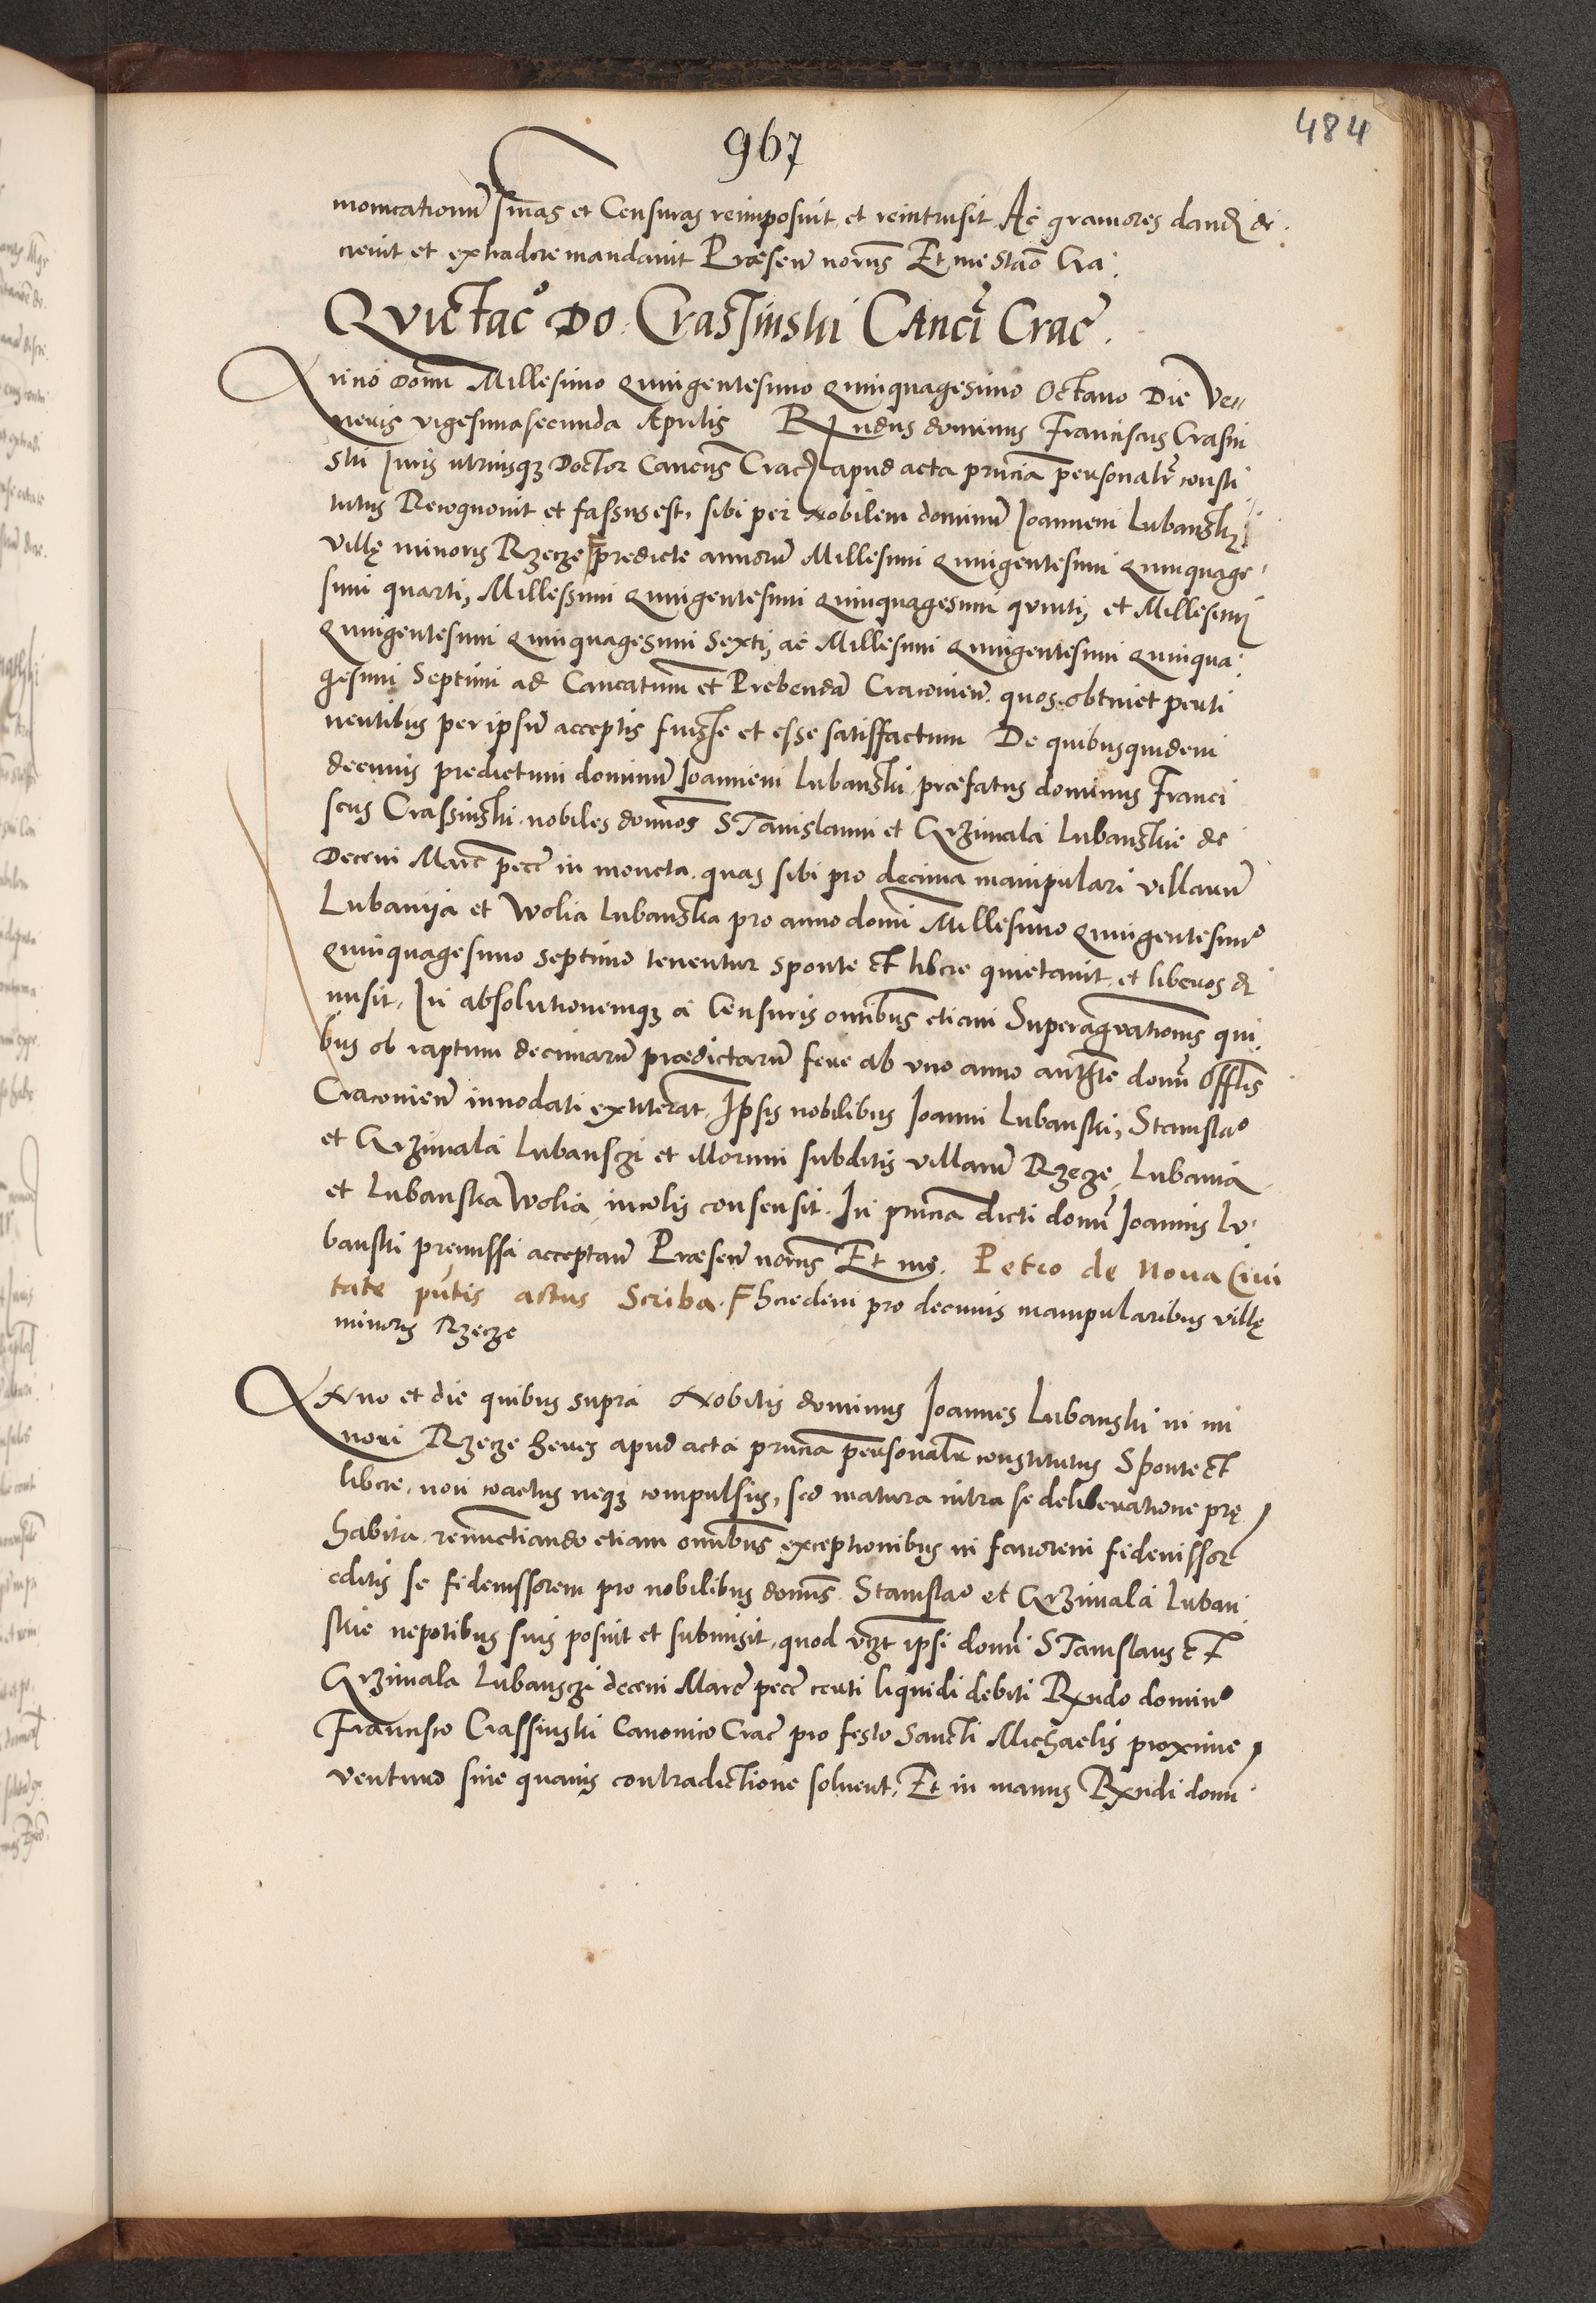 484
967
monicationum snias et Censuras reimposuit et reintrusit Ac graviores dand de
crevit et extradere mandavit Præsen noribus Et me Stao Gra:
Quictaco Do: Crassinski Canci Crac.
Anno Domi Millesimo Quingentesimo Quinquagesimo Octavo Die Ve
neris vigesimasecunda Aprilis Rndus dominus Franciscus Crasin
ski Juris utriusq3 Doctor Cancus Crac apud acta pruncia personalr consti
tutus Recognovit et fassus est, sibi per Nobilem dominum Joannem Lubanski
villę minoris Rzecze F predicte annorum Millesimi Quingentesimi Quinquage
simi quarti, Millessimi Quingentesimi Quinquagesimi quinti, et Millesimi
Quingentesimi Quinquagesimi Sexti, ac Millesimi Quingentesimi Quinqua
gesimi Septimi ad Cancatum et Prebendam Cracovien. quos obtinet perti
nentibus per ipsum acceptis fuisse et esse satisffactum De quibusquidem
decimis predictum dominum Joannem Lubanski præfatus dominus Franci
scus Crassinski nobiles domnos Stanislaum et Grzimala Lubanskie de
Decem Marc pecc in moneta quas sibi pro decima manipulari villarum
Lubanija et Wolia Lubanska pro anno domi Millesimo Quingentesimo
Quinquagesimo septimo tenentur sponte et libere quietavit et liberos di
misit. In absolutionemq3 a Censuris omibus etiam Superagravationis qui
bus ob raptum decimarum prædictarum fere ab uno anno domn Offlis
Cracovien innodati extiterat, Ipsis nobilibus Joanni Lubanski, Stanislao
et Grzimala Lubansczi et illorum subditis villarum Rzecze, Lubania
et Lubanska Wolia incolis consensit. In pruncia dicti domn Joannis Lu
banski premissa acceptan Præsen noribus Et me. Petro de Nova Civi
tate pntis actus Scriba. F heredem pro decimis manipularibus villę
minoris Rzecze
Anno et die quibus supra Nobilis dominus Joannes Lubanski in mi
nori Rzecze heres apud acta pruncia personalr constitutus Sponte et
libere, non coactus neq3 compulsus, sed matura intra se deliberatione prę
habita renunctiando etiam omibus exceptionibus in favorem fideiussor
editis se fideiussorem pro nobilibus domis Stanislao et Grzimala Luban
skie nepotibus suis posuit et submisit, quod vczt ipsi domn Stanislaus et
Grzimala Lubansczi decem Marc pecc certi liquidi debiti Rndo domino
Francisco Crassinski Canonico Crac pro festo Sancti Michaelis proxime
venturo sine quavis contradictione solvent, Et in manus Rndi domi